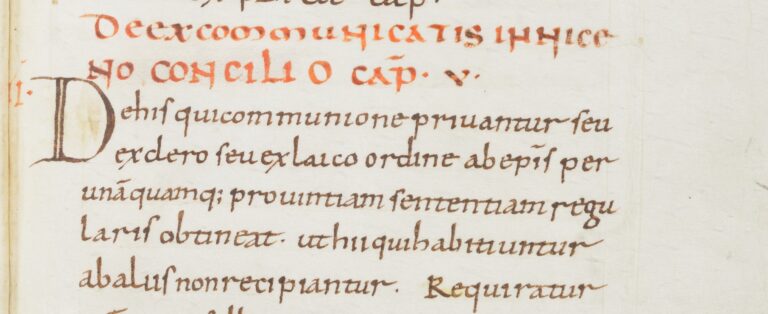 DE EXCOMMUNICATIS IN NICE
NO CONCILIO CAP̄. V.
II.
De his qui communione priuantur seu
ex clero seu ex laico ordine ab ep̄is per
unā quamq; prouintiam sententiam regu
laris obtineat. ut hii qui habitiuntur
ab aliis non recipiantur. Requiratur